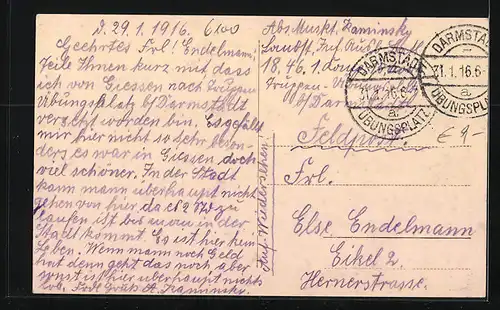 D. 29.1.1916.
6100
Geehrtes Frl! Endelmann!
Teile Ihnen kurz mit das
ich von Giessen nach Truppen
Übungsplatz b/Darmstadt
versetzt worden bin. Es gefällt
mir hier nicht so sehr beson-
ders es war in Giessen doch
viel schöner. In der Stadt
kann mann überhaupt nicht
gehen von hier, da es 2 zu
laufen ist bis man in der
Stadt kommt. So ist hier kein
Leben. Wenn mann noch Geld
hat denn geht das noch aber
sonst ist hier überhaupt nichts
los. Kaminsky.
Auf Wiedersehen!
Abs. Muskt. Kaminsky
Landst. Inf.
18. 46. 1.
Truppen-
b/Darmstadt
DARMSTADT
31.1.16.6-
a.
ÜBUNGSPLATZ
DARMSTADT
31.1.16.6-
a
ÜBUNGSPL
€ 9-
Feldpost.
Frl.
Else Endelmann
Eikel 2.
Hernerstrasse.